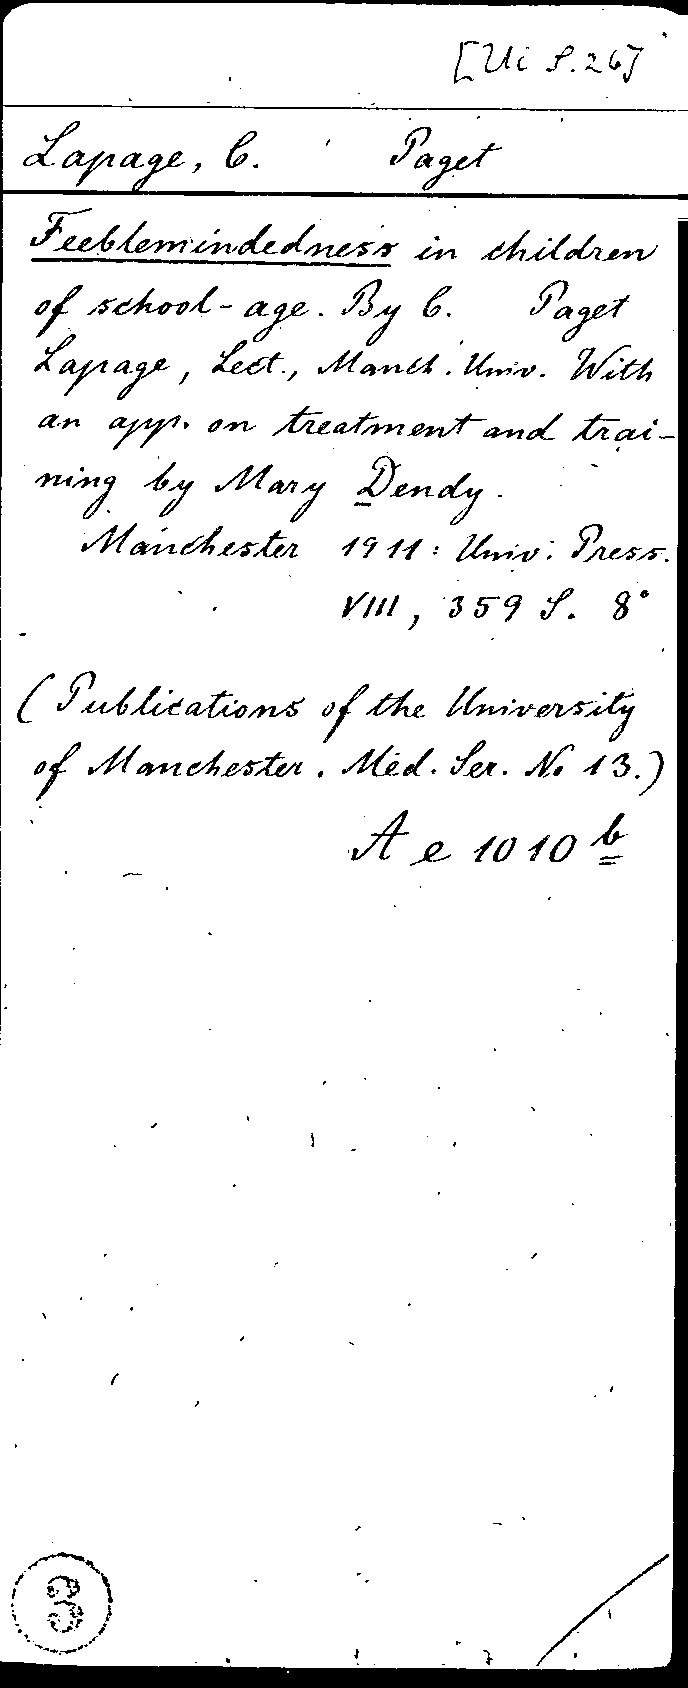 [Ui S. 26]
Lapage, C. Paget
Feeblemindedness in children
of school-age. By C. Paget
Lapage, Lect., Manch. Univ. With
an app. on treatment and trai-
ning by Mary Dendy.
Manchester 1911: Univ. Press.
VIII, 359 S. 8°
(Publications of the University
of Manchester. Med. Ser. No 13.)
A e 1010 b
3